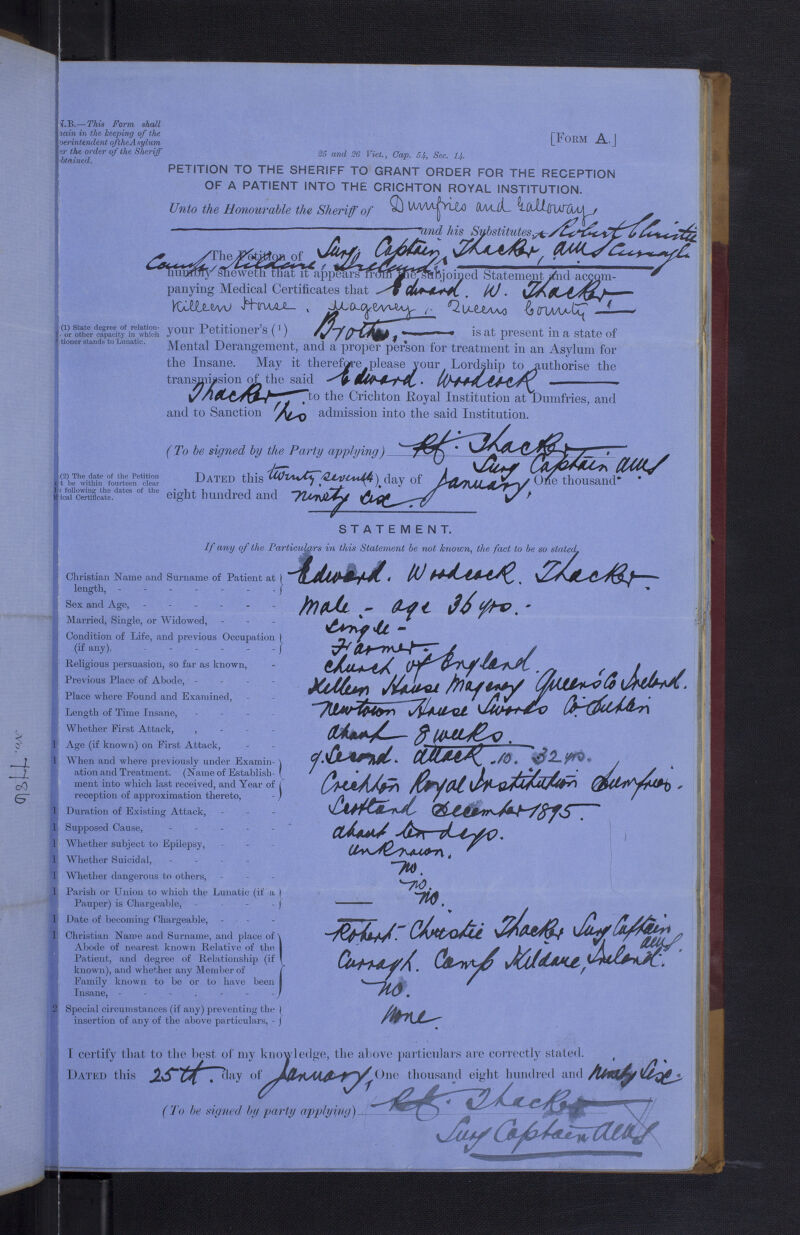 N.B.—This Form shall
main in the keeping of the
perintendent of the Asylum
er the order of the Sheriff
btained.
[FORM A.]
25 and 26 Vict., Cap. 54, Sec. 14.
PETITION TO THE SHERIFF TO GRANT ORDER FOR THE RECEPTION
OF A PATIENT INTO THE CRICHTON ROYAL INSTITUTION.
Unto the Honourable the Sheriff of Dumfries and Galloway,
and his Substitutes, Robert Christie
The Petition of Surg. Captain Thacker, AMS Curragh
County Kildare, Ireland,
humbly sheweth that it appears from the subjoined Statement and accom-
panying Medical Certificates that Edward. W. Thacker
Killeen House, Mageney, Queens County
(1) State degree of relation-
or other capacity in which
tioner stands to Lunatic.
your Petitioner's (1) Brother, is at present in a state of
Mental Derangement, and a proper person for treatment in an Asylum for
the Insane. May it therefore please your Lordship to authorise the
transmission of the said Edward. Woodcock
Thacker, to the Crichton Royal Institution at Dumfries, and
and to Sanction his admission into the said Institution.
(To be signed by the Party applying) Rt. Thacker
Surg Captain AMS
(2) The date of the Petition
t be within fourteen clear
following the dates of the
ical Certificate.
DATED this twenty seventh day of January, One thousand
eight hundred and ninety six.
STATEMENT.
If any of the Particulars in this Statement be not known, the fact to be so stated.
Christian Name and Surname of Patient at length, - Edward. Woodcock. Thacker
Sex and Age, - Male - age 36 yrs. -
Married, Single, or Widowed, - Single -
Condition of Life, and previous Occupation (if any). - Farmer -
Religious persuasion, so far as known, - Church of England.
Previous Place of Abode, - Killeen House Mageney Queens Co Ireland.
Place where Found and Examined, - Newtown House Swords Co. Dublin
Length of Time Insane, about 8 weeks.
Whether First Attack, Second. attack.
1 Age (if known) on First Attack, 32 yrs.
1 When and where previously under Examin-
ation and Treatment. (Name of Establish-
ment into which last received, and Year of
reception of approximation thereto, -
Crichton Royal Institution Dumfries.
Scotland December 1895.
1 Duration of Existing Attack, - about ten days.
1 Supposed Cause, unknown.
1 Whether subject to Epilepsy, no.
1 Whether Suicidal, no.
1 Whether dangerous to others, no.
1 Parish or Union to which the Lunatic (if a
Pauper) is Chargeable, -
1 Date of becoming Chargeable, -
1 Christian Name and Surname, and place of
Abode of nearest known Relative of the
Patient, and degree of Relationship (if
known), and whether any Member of
Family known to be or to have been
Insane, -
Robert Christie Thacker Surg Captain
AMS.
Curragh. Camp Kildare, Ireland.
no.
2 Special circumstances (if any) preventing the
insertion of any of the above particulars, - none
I certify that to the best of my knowledge, the above particulars are correctly stated.
DATED this 25th. day of January, One thousand eight hundred and ninety six.
(To be signed by party applying) Rt. Thacker
Surg Captain AMS
No. 7486